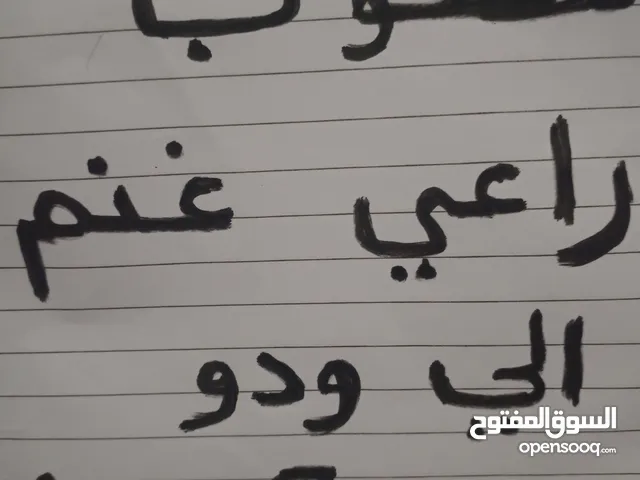 راعي غنم
الي ودو
السوق المفتوح
opensooq.com